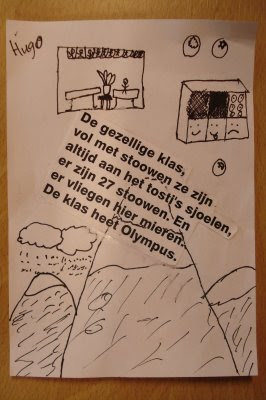 Hugo
De gezellige klas,
vol met stoowen ze zijn
altijd aan het tosti's sjoelen,
er zijn 27 stoowen. En
er vliegen hier mieren.
De klas heet Olympus.